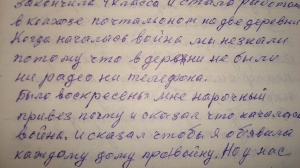 закончила 4 класса и стала работать
в колхозе почтальоном на две деревни
Когда началась война мы незнали
потому что в деревни не были
ни радео ни телефона.
Было воскресень мне нарочный
привез почту и сказал что началась
война. И сказал чтобы я обявила
каждому дому провойну. Но у нас